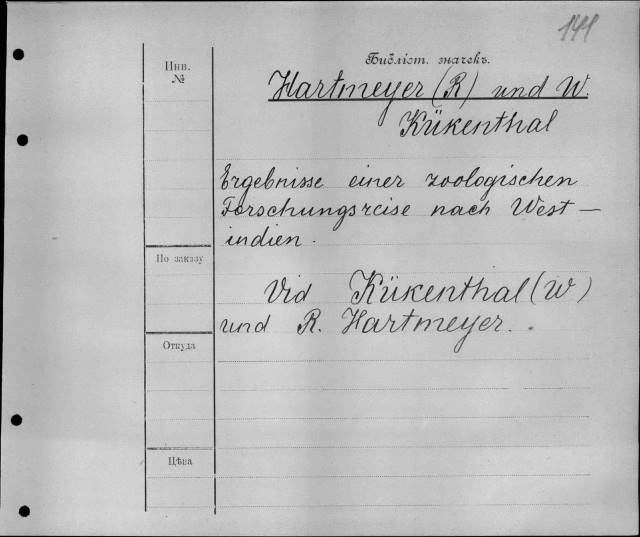 144
Инв.
№
Библіот. значекъ.
Hartmeyer (R) und W.
Kükenthal
Ergebnisse einer zoologischen
Forschungsreise nach West—
indien.
По заказу
Vid Kükenthal (W)
und R. Hartmeyer.
Откуда
Цѣна